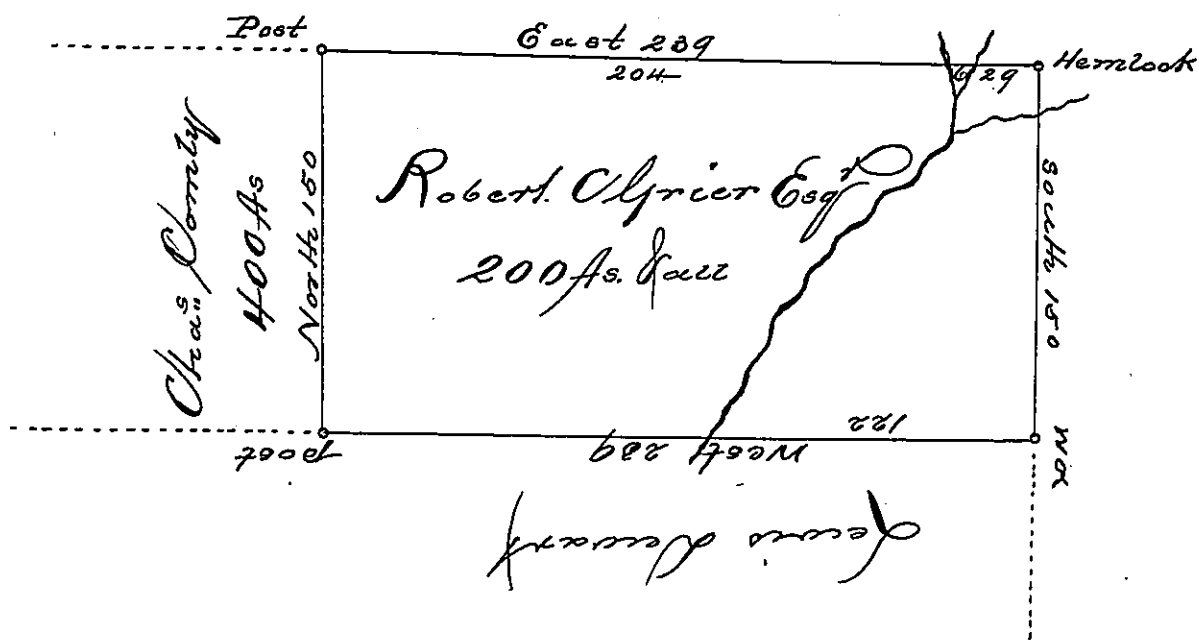 Post
East 239
204
6 29
Hemlock
Chas Comly
400 As
North 150
Robert C Grier Esqr
200 As.
South 150
122
West 239
Post
WO
Lewis Dewart